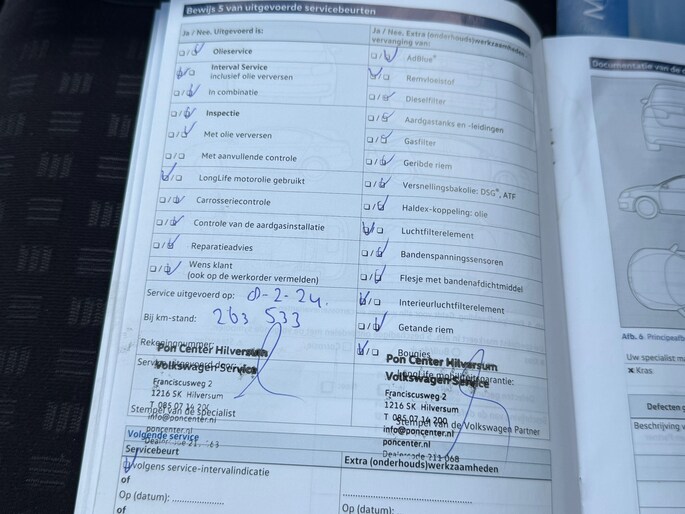 Bewijs 5 van uitgevoerde servicebeurten
Ja / Nee. Uitgevoerd is:
☐/☐ Olieservice
☐/☐ Interval Service
inclusief olie verversen
☐/☐ In combinatie
☐/☐ Inspectie
☐/☐ Met olie verversen
☐/☐ Met aanvullende controle
☐/☐ LongLife motorolie gebruikt
☐/☐ Carrosseriecontrole
☐/☐ Controle van de aardgasinstallatie
☐/☐ Reparatieadvies
☐/☐ Wens klant
(ook op de werkorder vermelden)
Service uitgevoerd op: 8-2-24.
Bij km-stand: 263 533
Rekeningnummer:
Pon Center Hilversum
Volkswagen Service
Franciscusweg 2
1216 SK Hilversum
T 085 07 16 200
Stempel van de specialist
info@poncenter.nl
poncenter.nl
Ja / Nee. Extra (onderhouds)werkzaamheden
vervanging van:
☐/☐ AdBlue®
☐/☐ Remvloeistof
☐/☐ Dieselfilter
☐/☐ Aardgastanks en -leidingen
☐/☐ Gasfilter
☐/☐ Geribde riem
☐/☐ Versnellingsbakolie: DSG®, ATF
☐/☐ Haldex-koppeling: olie
☐/☐ Luchtfilterelement
☐/☐ Bandenspanningssensoren
☐/☐ Flesje met bandenafdichtmiddel
☐/☐ Interieurluchtfilterelement
☐/☐ Getande riem
☐/☐ Bougies
Pon Center Hilversum
LongLife mobiliteitsgarantie:
Volkswagen Service
Franciscusweg 2
1216 SK Hilversum
T 085 07 16 200
Stempel van de Volkswagen Partner
info@poncenter.nl
poncenter.nl
Dealercode 211 068
Volgende service
Servicebeurt
volgens service-intervalindicatie
of
Op (datum): ................
of
Extra (onderhouds)werkzaamheden
Op (datum):
Documentatie van de
Afb. 6 Principeafb
Uw specialist
× Kras
Defecten
Beschrijving